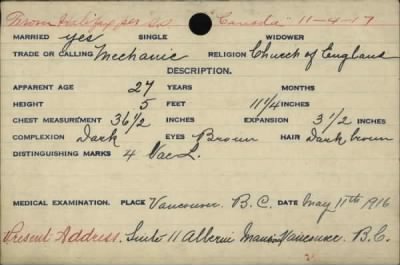 From Halifax per SS "Canada" 11-4-17
MARRIED yes SINGLE WIDOWER
TRADE OR CALLING Mechanic RELIGION Church of England
DESCRIPTION.
APPARENT AGE 27 YEARS MONTHS
HEIGHT 5 FEET 11 1/4 INCHES
CHEST MEASUREMENT 36 1/2 INCHES EXPANSION 3 1/2 INCHES
COMPLEXION Dark EYES Brown HAIR Dark brown
DISTINGUISHING MARKS 4 Vac L.
MEDICAL EXAMINATION. PLACE Vancouver. B.C. DATE May 11th 1916
Present Address. Suite 11 Alberni Vancouver. B.C.